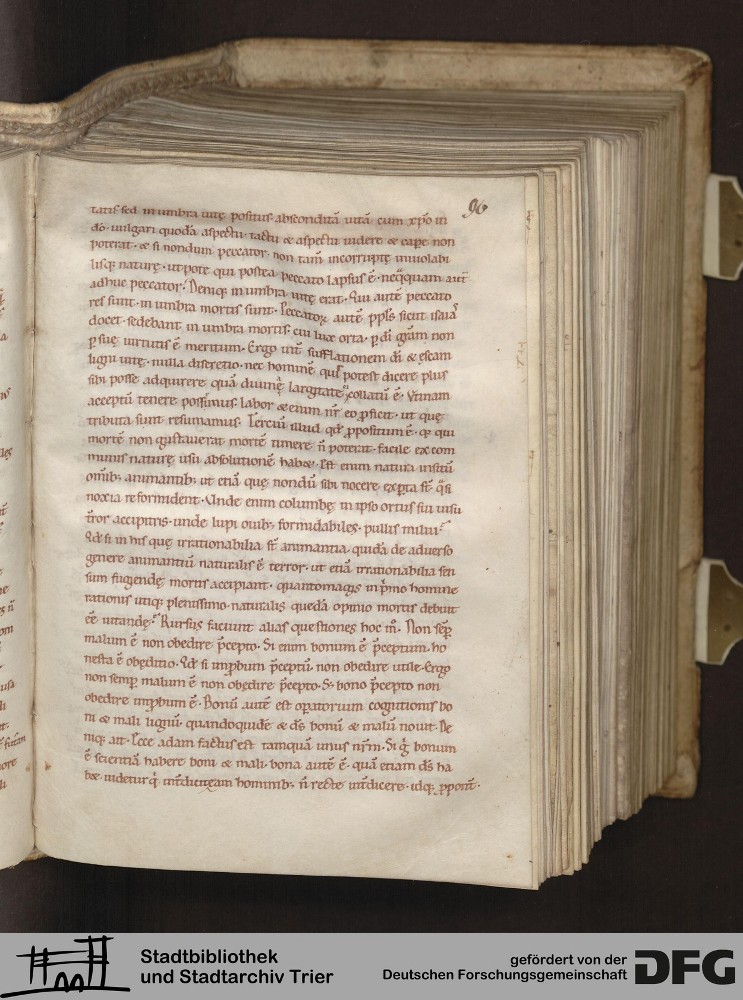 96
tatis sed in umbra uitę positus absconditā uitā cum xp̄o in
dō. uulgari quodā aspectu. tactu & aspectu uidere & cape non
poterat. & si nondum peccator. non tam̄ incorruptę inuiolabi
lisq; naturę. ut pote qui postea peccato lapsus ē. neq̄quam aut̄
adhuc peccator. Deniq; in umbra uitę erat. Qui autē peccato
res sunt. in umbra mortis sunt. Peccatoꝝ autē ppl̄s sicut isaias
docet. sedebant in umbra mortis. cui luce orta. ꝑ dī grām non
ꝑ suę uirtutis ē meritum. Ergo int̄ sufflationem dī & escam
ligni uitę. nulla discretio. nec hominē quis potest dicere plus
sibi posse adquirere quā diuinę largitate collatū ē. Vtinam
acceptū tenere possimus. labor & enim nr̄ eo ꝓficit. ut quę
tributa sunt resumamus. Terciū illud qd̄ ꝓpositum ē. qꝫ qui
mortē non gustauerat mortē timere n̄ poterat. facile ex com
munis naturę usu absolutionē habet. Est enim natura insitū
omīb; animantib; ut etiā quę nondū sibi nocere exꝑta st̄ q̄si
noxia reformident. Vnde enim columbę in ipso ortus sui uisu
t̄ror accipitris. unde lupi ouib; formidabiles. pullis milui.
Qd̄ si in his quę irrationabilia st̄ animantia. quidā de aduerso
genere animantiū naturalis ē terror. ut etiā irrationabilia sen
sum fugiendę mortis accipiant. quantomagis in p̄mo homine
rationis utiq; plenissimo. naturalis quedā opinio mortis debuit
ēē uitandę. Rursus faciunt alias questiones hoc m̄. Non semꝑ
malum ē non obedire p̄cepto. Si enim bonum ē p̄ceptum. ho
nesta ē obędītio. Qd̄ si improbum p̄ceptū non obedire utile. Ergo
non semꝑ malum ē non obędire p̄cepto. S; bono p̄cepto non
obedire improbum ē. Bonū autē est oꝑatorium cognitionis bo
ni & mali lignū. quandoquidē & d̄s bonū & malū nouit. De
niq; ait. Ecce adam factus est tamquā unus nr̄m. Si g̊ bonum
ē scientiā habere boni & mali. bona autē ē. quā etiam d̄s ha
bet. uidetur q̄ int̄dicta hominib; n̄ recte int̄dicere. idq; ꝓponit.
Stadtbibliothek
und Stadtarchiv Trier
gefördert von der
Deutschen Forschungsgemeinschaft
DFG